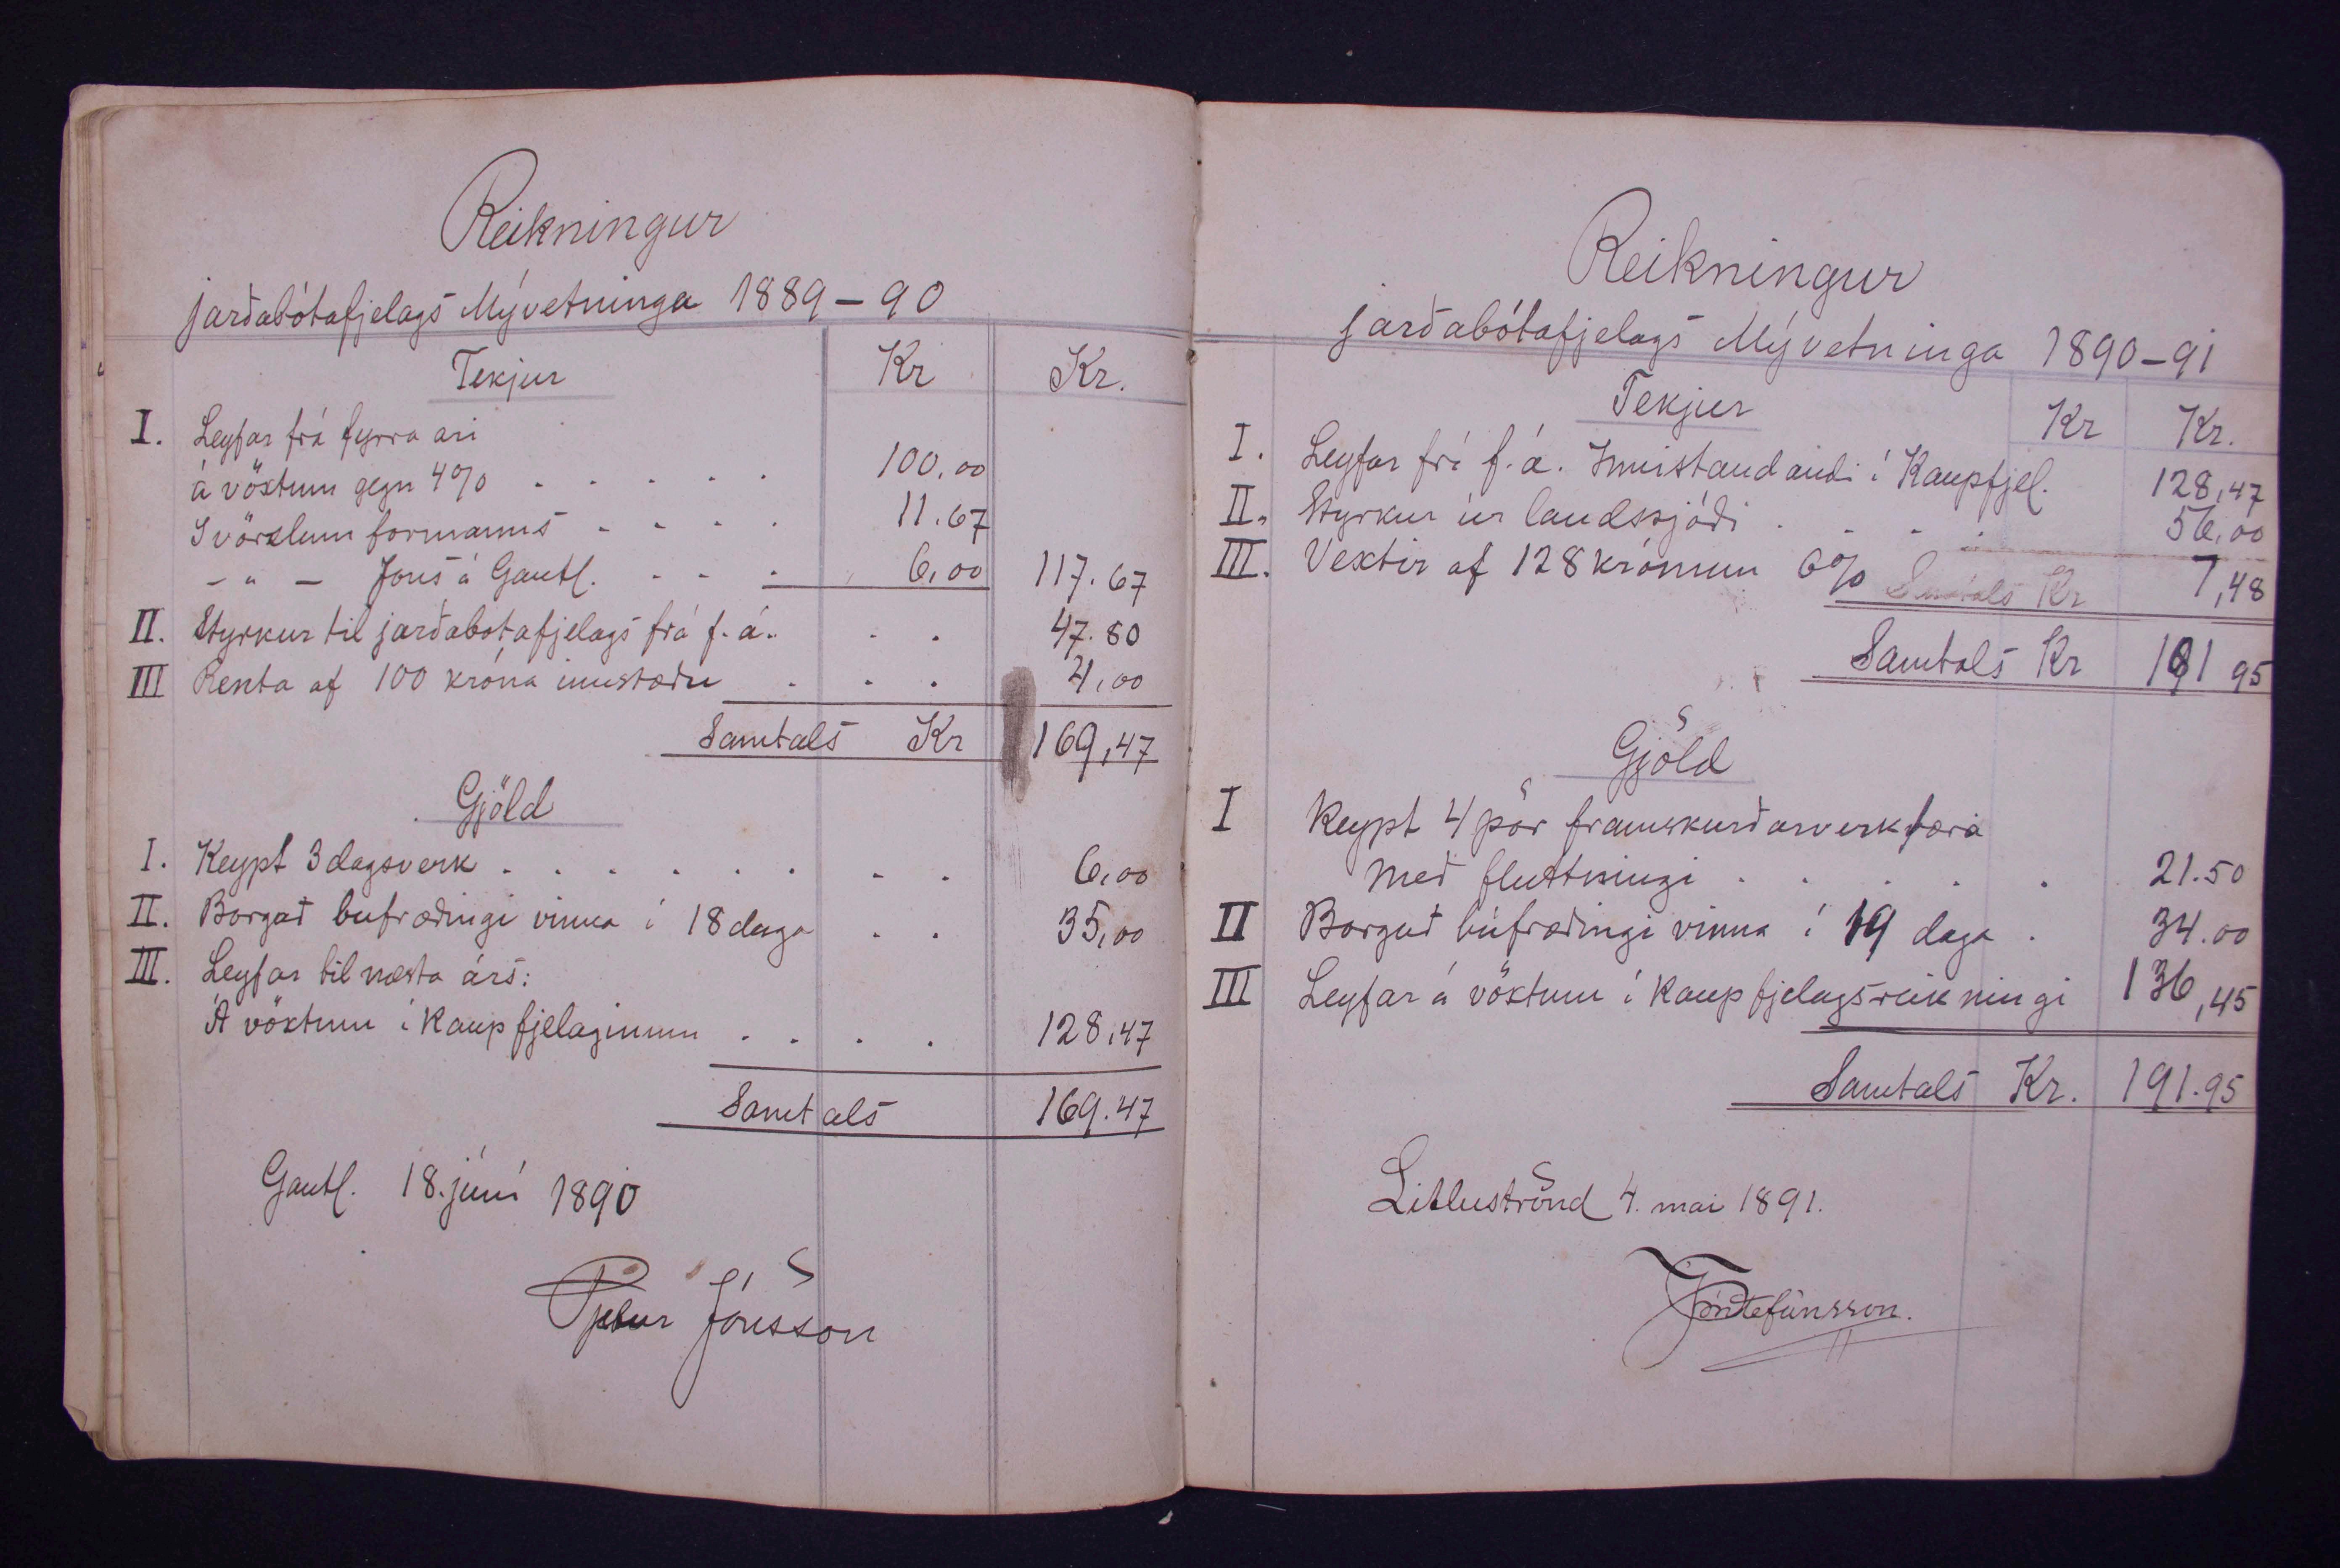 Reikningur
jarðabótafjelags Mývetninga 1889-90
Tekjur Kr Kr.
I. Leyfar frá fyrra ari
á vöxtum gegn 4% . . . . . 100,00
I vörzlum formanns - - . . 11.67
- " - Jóns á Gautl. - - . 6,00 117.67
II. Styrkur til jarðabotafjelags frá f. á. . . 47.80
III Renta af 100 króna innstæðu . . . 4,00
Samtals Kr 169,47
Gjöld
I. Keypt 3 dagsverk . . . . . . . . 6,00
II. Borgað búfræðingi vinna í 18 daga . . 35,00
III. Leyfar til næsta árs:
Á vöxtum í Kaupfjelaginum . . . . 128,47
Samtals 169.47
Gautl. 18. júní 1890
Pjetur Jónsson
Reikningur
jarðabótafjelags Mývetninga 1890-91
Tekjur Kr Kr.
I. Leyfar frá f. á. Innistandandi í Kaupfjel. 128,47
II. Styrkur úr landssjóði . - . . 56,00
III. Vextir af 128 krónum 6% Samtals Kr 7,48
Samtals Kr 191 95
Gjöld
I Keypt 4 pör framskurðarverkfæra
með fluttningi . . . . . 21.50
II Borgað búfræðingi vinna í 19 daga . 34.00
III Leyfar á vöxtum í Kaupfjelagsreikningi 136,45
Samtals Kr. 191.95
Litluströnd 4. mai 1891.
Jón Stefánsson.